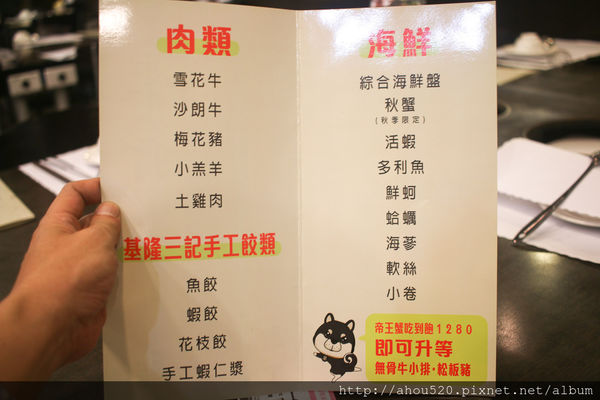 肉類
雪花牛
沙朗牛
梅花豬
小羔羊
土雞肉
基隆三記手工餃類
魚餃
蝦餃
花枝餃
手工蝦仁漿
海鮮
綜合海鮮盤
秋蟹
(秋季限定)
活蝦
多利魚
鮮蚵
蛤蠣
海蔘
軟絲
小卷
帝王蟹吃到飽1280
即可升等
無骨牛小排·松板豬
http://ahou520.pixnet.net/album